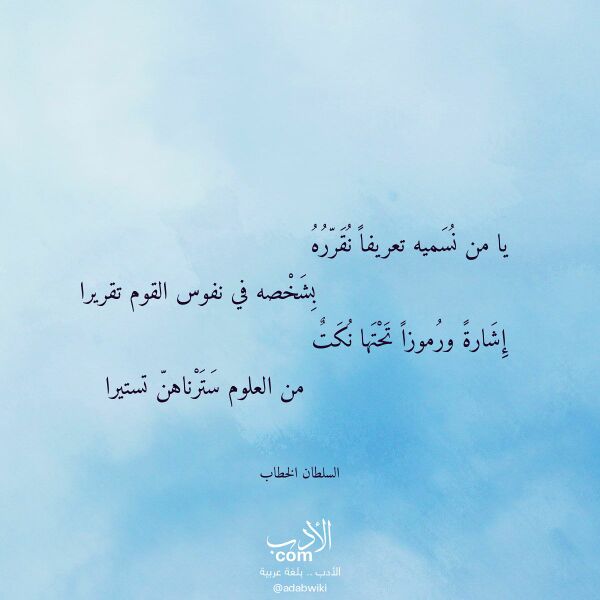 يا من نُسَميه تعريفاً نُقَرّرُهُ
بِشَخْصه في نفوس القوم تقريرا
إِشَارةً ورُموزاً تَحْتَها نُكَتٌ
من العلوم سَتَرْناهنّ تستيرا
السلطان الخطاب
الأدب
com
الأدب .. بلغة عربية
@adabwiki